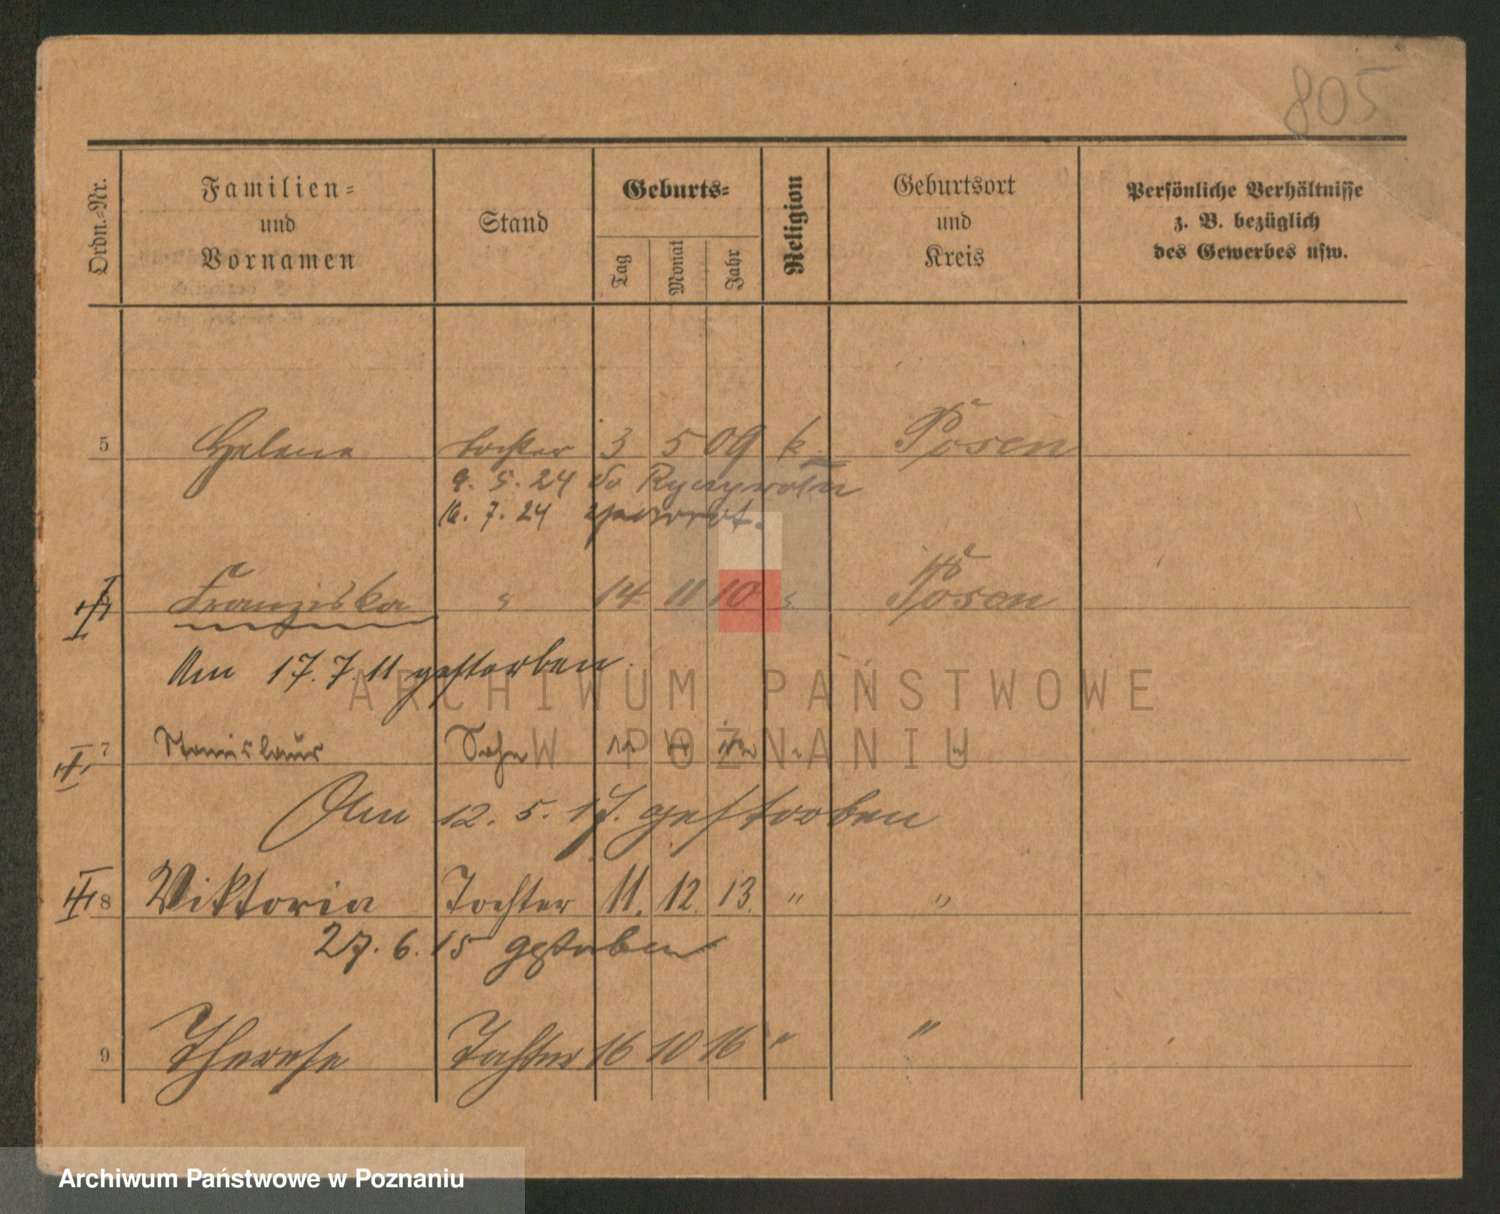 805
Ordn.-Nr.
Familien-
und
Vornamen
Stand
Geburts-
Tag
Monat
Jahr
Religion
Geburtsort
und
Kreis
Persönliche Verhältnisse
z. B. bezüglich
des Gewerbes usw.
5 Helene Tochter 3 5 09 k. Posen
9. 5. 24 do
16. 7. 24
Franziska " 14 11 10 " Posen
Am 17. 7. 11 gestorben.
7 Stanislaus Sohn
Am 12. 5. 17. gestorben
8 Viktoria Tochter 11. 12. 13. " "
27. 6. 15 gestorben
9 Therese Tochter 16 10 16 " "
ARCHIWUM PAŃSTWOWE
W POZNANIU
Archiwum Państwowe w Poznaniu